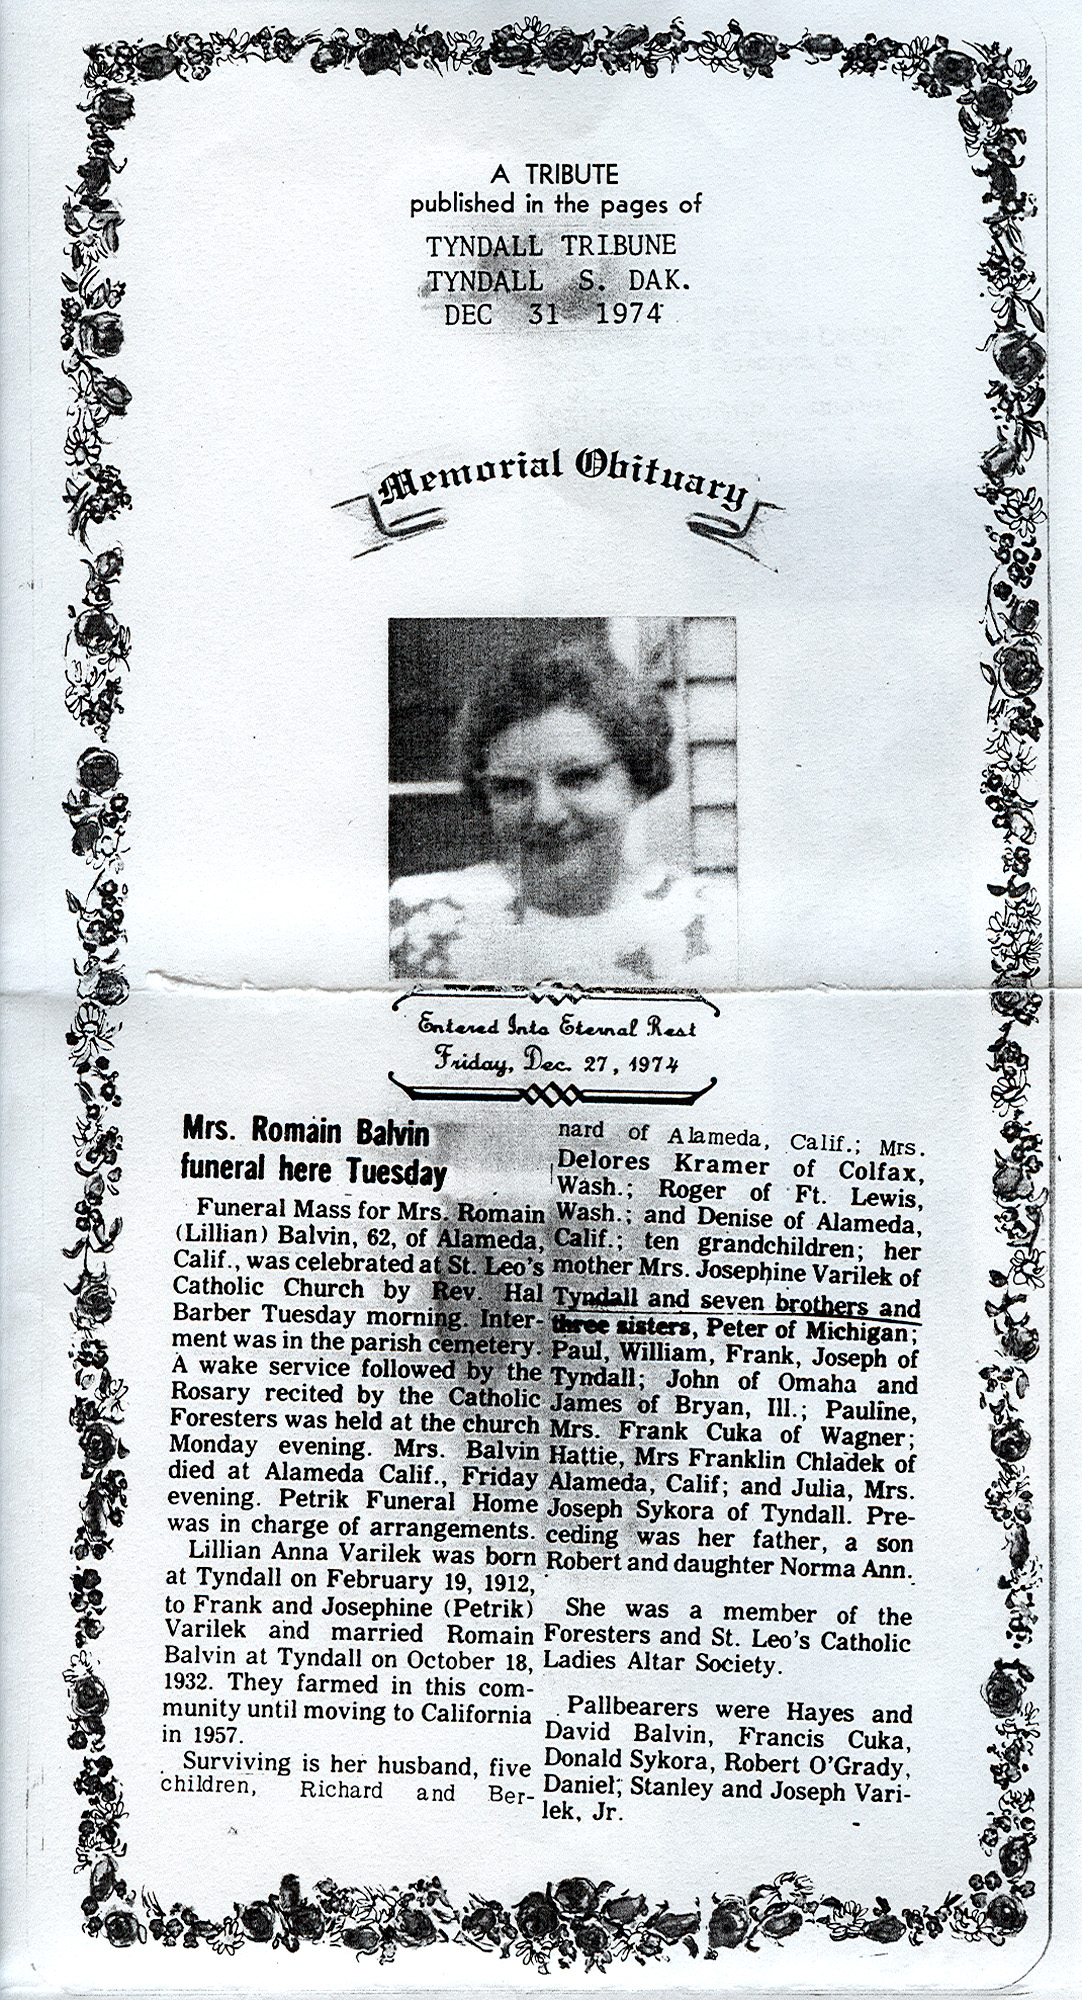 A TRIBUTE
published in the pages of
TYNDALL TRIBUNE
TYNDALL S. DAK.
DEC 31 1974
Memorial Obituary
Entered Into Eternal Rest
Friday, Dec. 27, 1974
Mrs. Romain Balvin
funeral here Tuesday
Funeral Mass for Mrs. Romain
(Lillian) Balvin, 62, of Alameda,
Calif., was celebrated at St. Leo's
Catholic Church by Rev. Hal
Barber Tuesday morning. Inter-
ment was in the parish cemetery.
A wake service followed by the
Rosary recited by the Catholic
Foresters was held at the church
Monday evening. Mrs. Balvin
died at Alameda Calif., Friday
evening. Petrik Funeral Home
was in charge of arrangements.
Lillian Anna Varilek was born
at Tyndall on February 19, 1912,
to Frank and Josephine (Petrik)
Varilek and married Romain
Balvin at Tyndall on October 18,
1932. They farmed in this com-
munity until moving to California
in 1957.
Surviving is her husband, five
children, Richard and Ber-
nard of Alameda, Calif.; Mrs.
Delores Kramer of Colfax,
Wash.; Roger of Ft. Lewis,
Wash.; and Denise of Alameda,
Calif.; ten grandchildren; her
mother Mrs. Josephine Varilek of
Tyndall and seven brothers and
three sisters, Peter of Michigan;
Paul, William, Frank, Joseph of
Tyndall; John of Omaha and
James of Bryan, Ill.; Pauline,
Mrs. Frank Cuka of Wagner;
Hattie, Mrs Franklin Chladek of
Alameda, Calif; and Julia, Mrs.
Joseph Sykora of Tyndall. Pre-
ceding was her father, a son
Robert and daughter Norma Ann.
She was a member of the
Foresters and St. Leo's Catholic
Ladies Altar Society.
Pallbearers were Hayes and
David Balvin, Francis Cuka,
Donald Sykora, Robert O'Grady,
Daniel, Stanley and Joseph Vari-
lek, Jr.